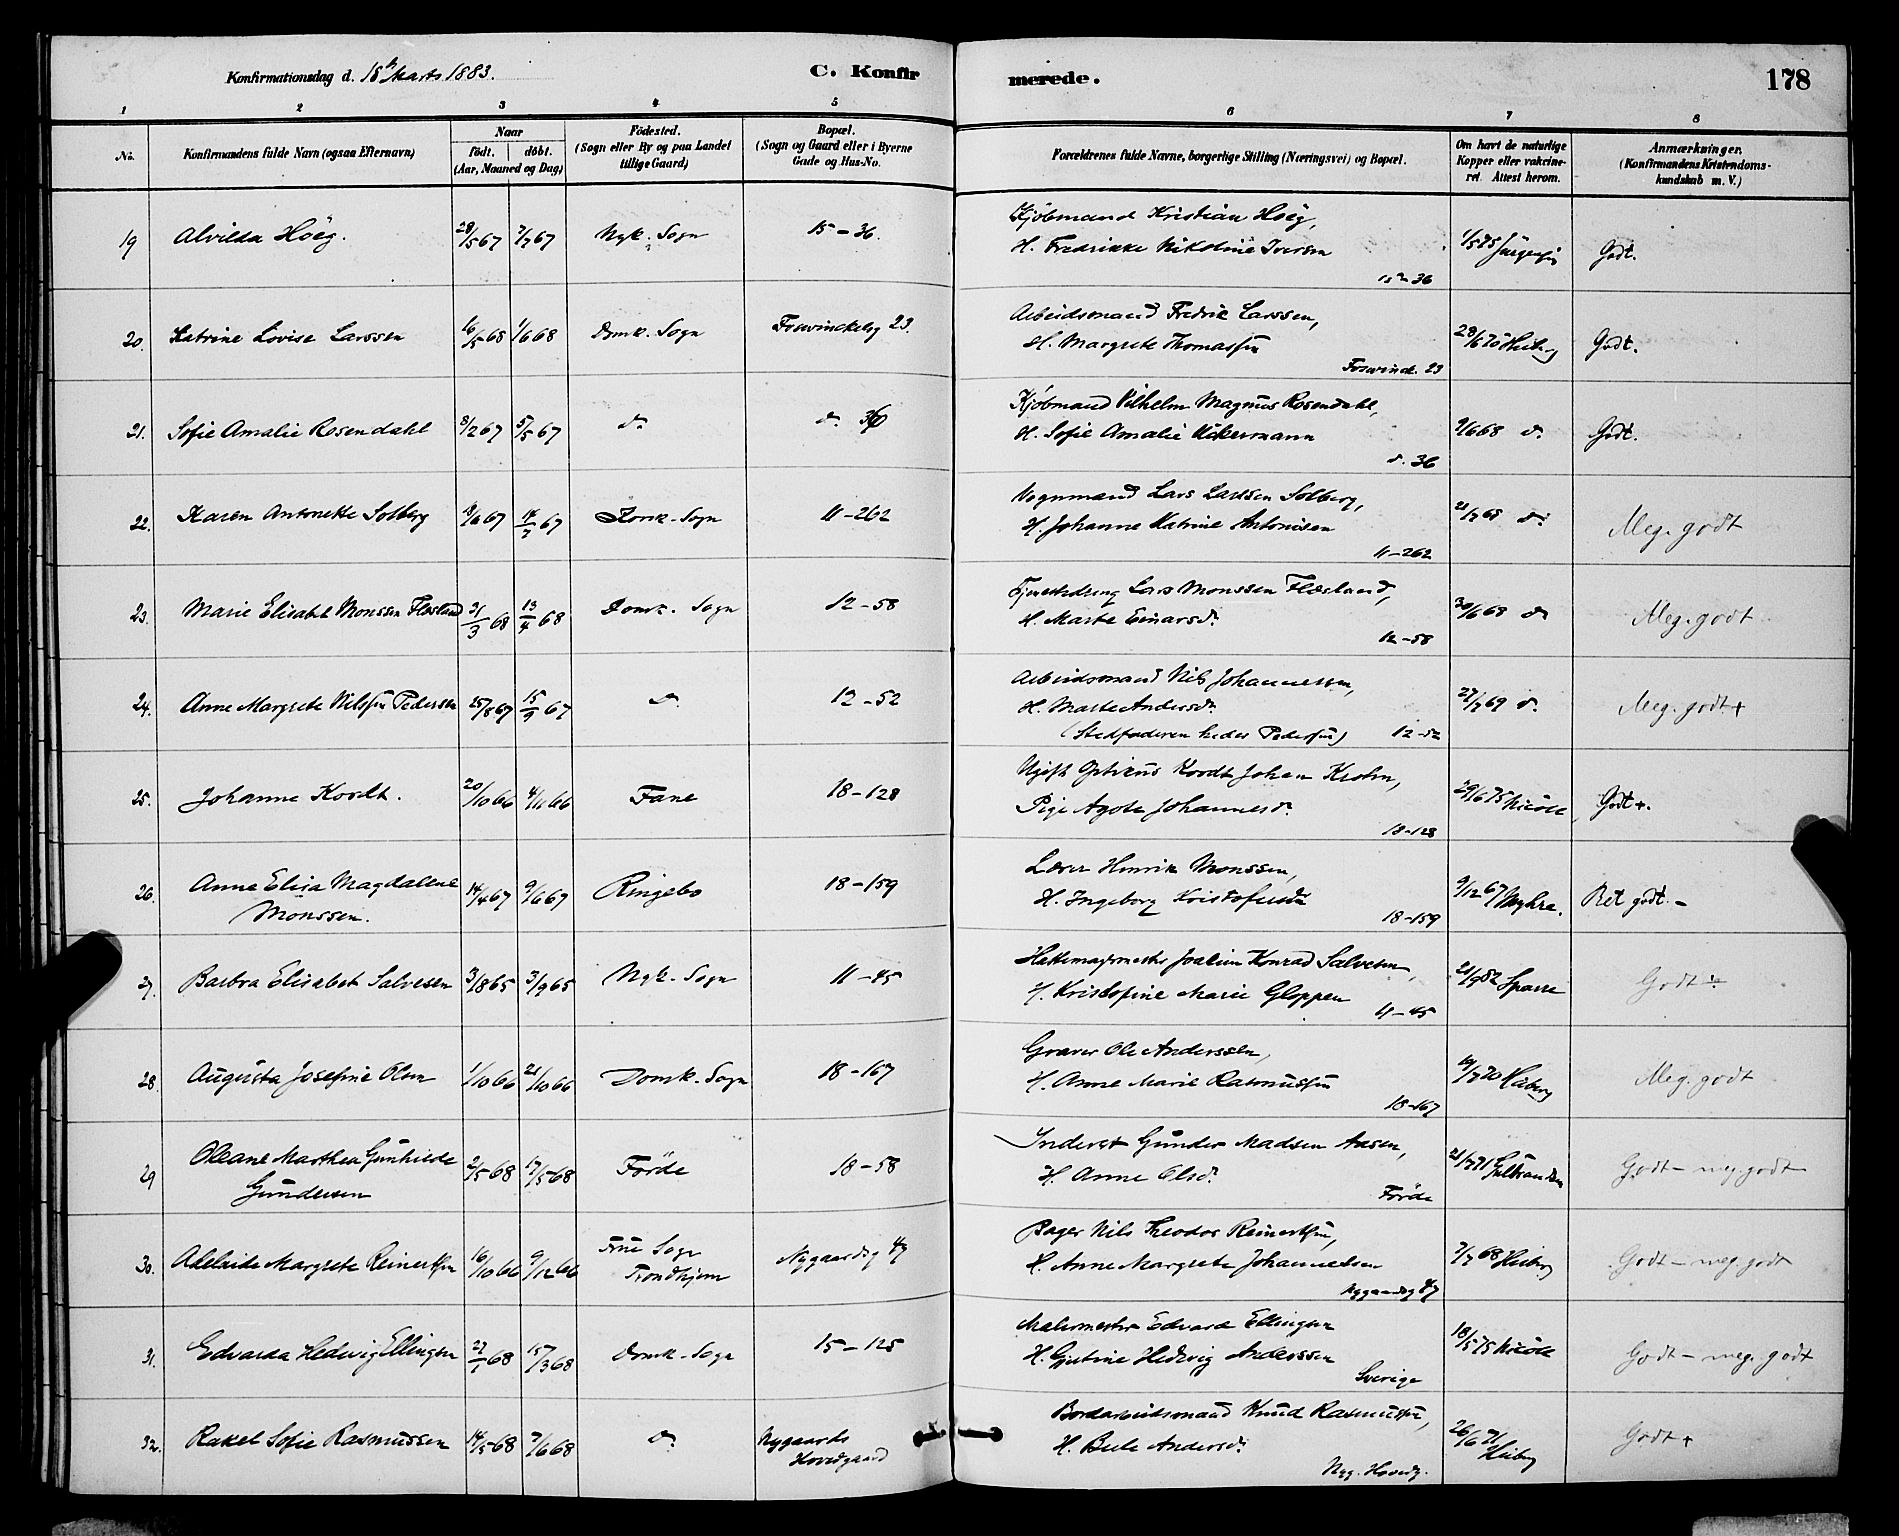 Konfirmationsdag d. 18de Marts 1883.
C. Konfirmerede.
178
1 2 3 4 5 6 7 8
No.
Konfirmandens fulde Navn (ogsaa Efternavn)
Naar
födt. döbt.
(Aar, Maaned og Dag)
Födested.
(Sogn eller By og paa Landet
tillige Gaard)
Bopæl.
(Sogn og Gaard eller i Byerne
Gade og Hus-No.
Forældrenes fulde Navne, borgerlige Stilling (Næringsvei) og Bopæl.
Om havt de naturlige
Kopper eller vakcine-
ret. Attest herom.
Anmærkninger.
(Konfirmandens Kristendoms-
kundskab m. V.)
19 Alvilda Höeg. 28/5 67 7/7 67 Nyk. Sogn 15-36.
Kjöbmand Kristian Höeg,
H. Fredrikke Nikoline Iversen
15-36
1/5 75 Godt.
20. Katrine Lovise Larssen 16/5 68 1/6 68 Domk. Sogn 23.
Arbeidsmand Fredrik Larssen,
H. Margrete Thomassen
23
28/6 70 Heiberg Godt.
21. Sofie Amalie Rosendahl 8/2 67 5/5 67 do do 36
Kjöbmand Vilhelm Magnus Rosendahl,
H. Sofie Amalie Ackermann
do. 36
9/6 68 do Godt.
22. Karen Antonette Solberg 18/6 67 14/7 67 Domk. Sogn 11-262
Vognmand Lars Larssen Solberg,
H. Johanne Katrine Antonisen
11-262
21/7 68 do Meg. godt
23. Marie Elisabet Monssen Flesland 31/3 68 13/4 68 Domk. Sogn 12-58
Lars Monssen Flesland,
H. Marte Einarsdr
12-58
30/6 68 do Meg. godt
24. Anne Margrete Nilssen Pedersen 25/8 67 15/9 67 do 12-52
Arbeidsmand Nils Johannessen,
H. Marte Andersdr
(Stedfaderen heder Pedersen) 12-52
27/7 69 do Meg. godt+
25. Johanne Kordt. 20/10 66 4/11 66 Fane 18-128
Ugift Kordt Johan Krohn,
Pige Agote Johannesdr
18-128
29/6 75 Nicoll Godt+.
26. Anne Elisa Magdalene
Monssen. 14/4 67 9/6 67 Ringebo 18-159
Lærer Henrik Monssen,
H. Ingeborg Kristofersdr
18-159
9/12 67 Myhre. Ret godt.-
27. Barbra Elisabet Salvesen 3/8 65 3/9 65 Nyk. Sogn 11-45
Hattemagermester Joakim Konrad Salvesen,
H. Kristofine Marie Gloppen
11-45
21/9 82 Sparre Godt
28. Augusta Josefine Olsen 1/10 66 21/10 66 Domk. Sogn 18-167
Graver Ole Anderssen,
H. Anne Marie Rasmussen
18-167
19/7 70 Heiberg Meg. godt
29 Oleane Marthea Gunhilde
Gundersen 2/5 68 17/5 68 Förde 18-58
Inderst Gunder Madsen Aasen,
H. Anne Olsdr
Förde
21/7 71 Gulbrandsen Godt - meg. godt
30. Adelaide Margrete Reinertsen 16/10 66 9/12 66 Frue Sogn
Trondhjem Nygaardsg 47
Bager Nils Theodor Reinertsen,
H. Anne Margrete Johannesen
Nygaardsg 47
7/7 68 Heiberg Godt - meg. godt
31. Edvarda Hedevig Ellingsen 27/1 68 15/3 68 Domk. Sogn 15-125
Malermester Edvard Ellingsen
H. Gjertine Hedevig Anderssen
Sverige
18/5 75 Nicoll Godt - meg. godt
32. Rakel Sofie Rasmussen 14/5 68 7/6 68 do Nygaards
Hovedgaard
Bordarbeidsmand Knud Rasmussen,
H. Beele Andersdr
Nyg. Hovedg.
26/6 71
Heiberg Godt+